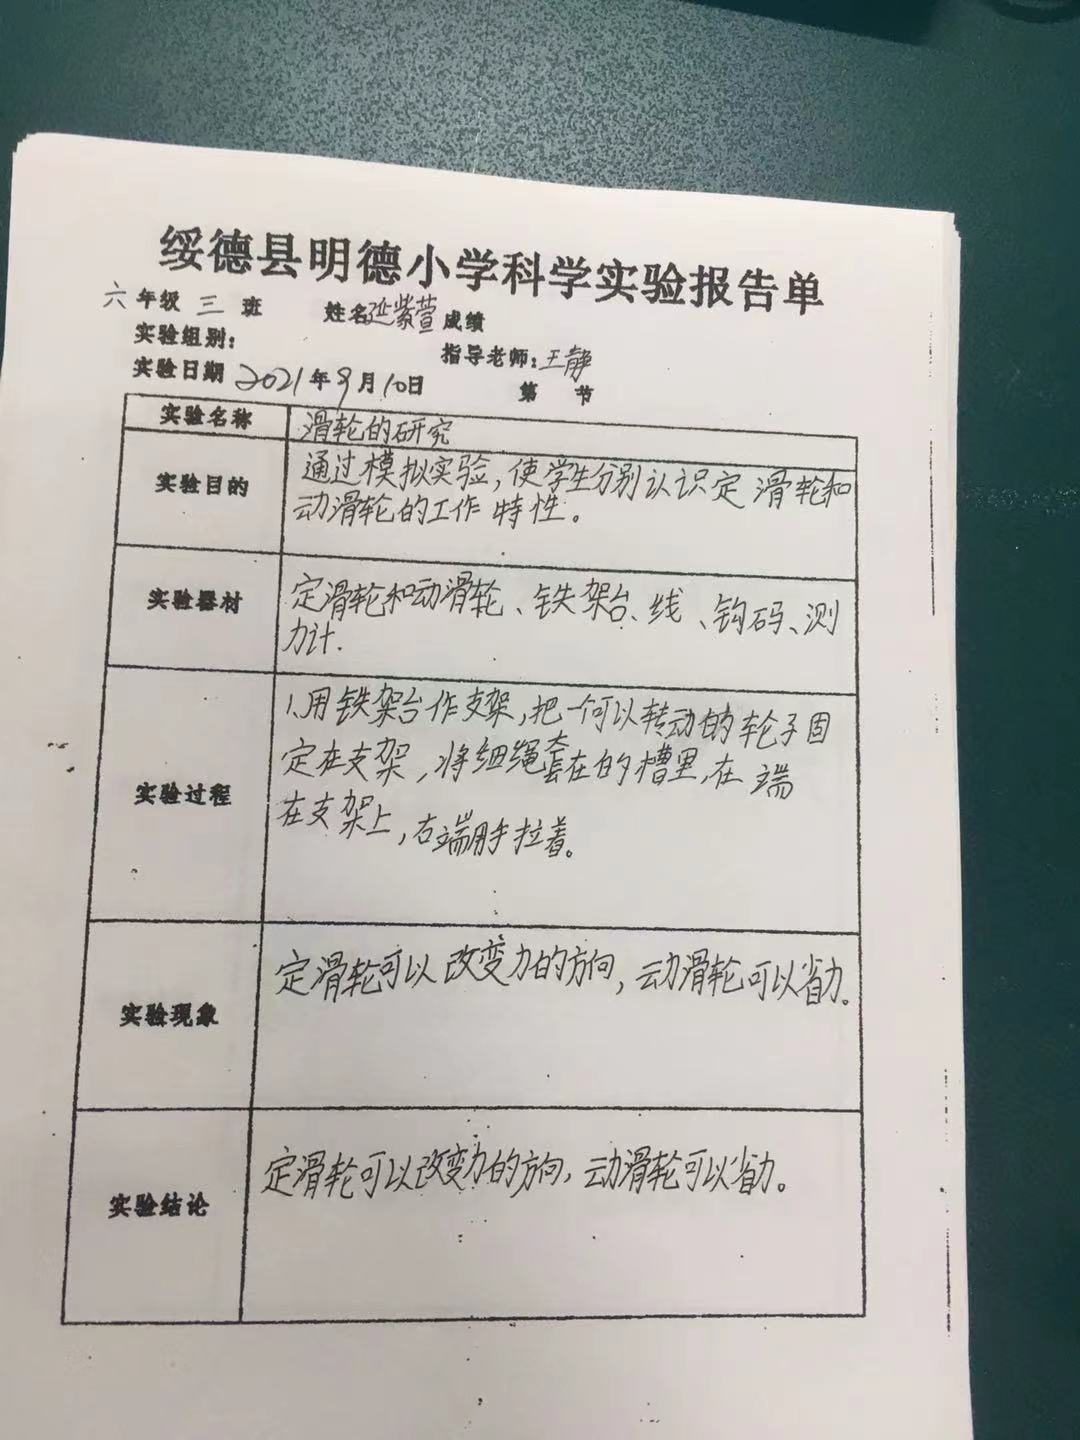 绥德县明德小学科学实验报告单
六年级 三 班 姓名延紫萱成绩
实验组别: 指导老师:王静
实验日期 2021年9月10日 第 节
实验名称 滑轮的研究
实验目的 通过模拟实验,使学生分别认识定滑轮和
动滑轮的工作特性。
实验器材 定滑轮和动滑轮、铁架台、线、钩码、测
力计.
实验过程 1.用铁架台作支架,把一个可以转动的轮子固
定在支架,将细绳套在的槽里,在端
在支架上,右端用手拉着。
实验现象 定滑轮可以改变力的方向,动滑轮可以省力。
实验结论 定滑轮可以改变力的方向,动滑轮可以省力。